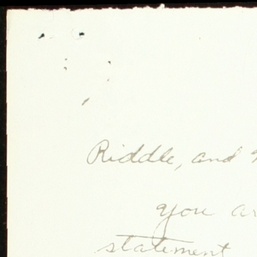 Riddle, and
you
statement